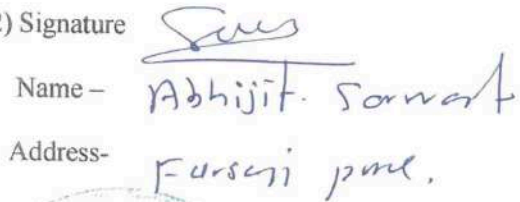 2) Signature
Name – Abhijit. Sarwat
Address- Fursungi pune.